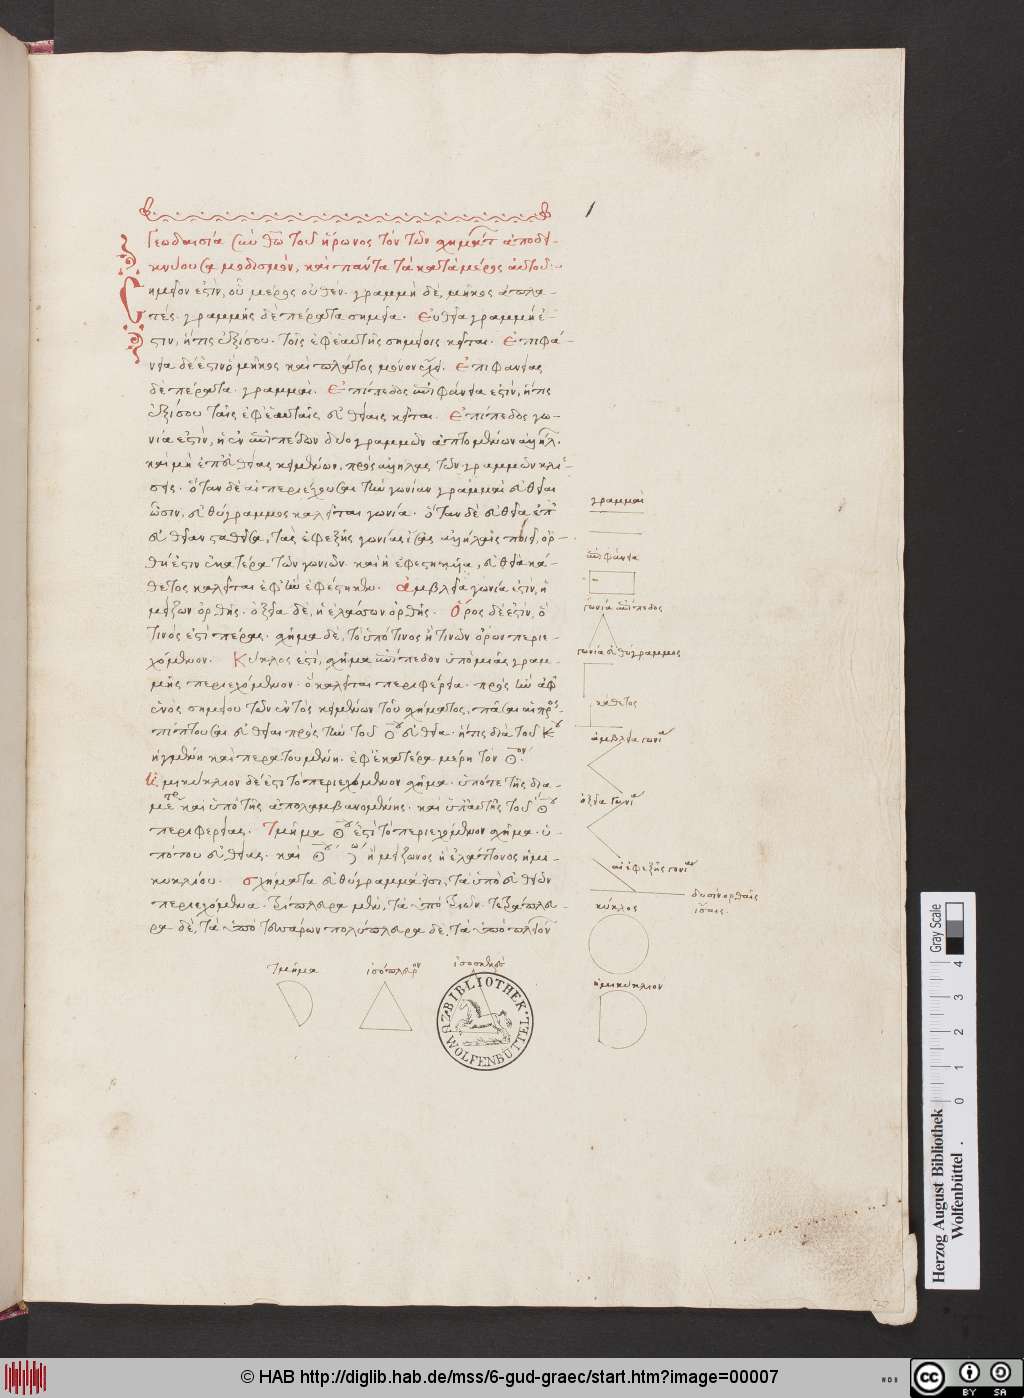 1
Γεωδαισία σὺν θῶ τοῦ ἥρωνος τὸν τῶν σχημάτ ἀποδει-
κνύουσα μοδισμόν, καὶ πάντα τὰ κατὰ μέρος αὐτοῦ
Σημεῖον ἐστὶν, οὗ μέρος οὐθέν. γραμμὴ δὲ, μῆκος ἀπλα-
τές. γραμμῆς δὲ πέρατα σημεῖα. Εὐθεῖα γραμμή ἐ-
στιν, ἥτις ἐξίσου τοῖς ἐφ ἑαυτῆς σημείοις κεῖται. Ἐπιφά-
νεια δέ ἐστιν ὃ μῆκος καὶ πλάτος μόνον ἔχει. Ἐπιφανείας
δὲ πέρατα γραμμαί. Ἐπίπεδος ἐπιφάνεια ἐστὶν, ἥτις
ἐξίσου ταῖς ἐφ ἑαυταῖς εὐθείαις κεῖται. Ἐπίπεδος γω-
νία ἐστὶν, ἡ ἐν ἐπιπέδων δύο γραμμῶν ἁπτομένων ἀλλήλ
καὶ μὴ ἐπ εὐθείας κειμένων, πρὸς ἀλλήλας τῶν γραμμῶν κλί-
σις. ὅταν δὲ αἱ περιέχουσαι τὴν γωνίαν γραμμαὶ εὐθεῖαι
ὦσιν, εὐθύγραμμος καλεῖται γωνία. ὅταν δὲ εὐθεῖα ἐπ
εὐθεῖαν σταθεῖσα, τὰς ἐφεξῆς γωνίας ἴσας ἀλλήλαις ποιεῖ, ὀρ-
θή ἐστιν ἑκατέρα τῶν γωνιῶν. καὶ ἡ ἐφεστηκυῖα, εὐθεῖα κά-
θετος καλεῖται ἐφ ἣν ἐφέστηκεν. ἀμβλεῖα γωνία ἐστὶν, ἡ
μείζων ὀρθῆς. ὀξεῖα δὲ, ἡ ἐλάσσων ὀρθῆς. Ὅρος δέ ἐστὶν, ὅ
τινός ἐστὶ πέρας. σχῆμα δὲ, τὸ ὑπό τινος ἤ τινων ὅρων περιε-
χόμενον. Κύκλος ἐστὶ, σχῆμα ἐπίπεδον ὑπὸ μιᾶς γραμ-
μῆς περιεχόμενον. ὃ καλεῖται περιφέρεια. πρὸς ἣν ἀφ
ἑνὸς σημείου τῶν ἐντὸς κειμένων τοῦ σχήματος, πᾶσαι αἱ προσ-
πίπτουσαι εὐθεῖαι πρὸς τὴν τοῦ εὐθεῖα. ἥτις διὰ τοῦ
ἠγμένη καὶ περατουμένη. ἐφ ἑκατέρα μέρη τὸν
Ἡμικύκλιον δέ ἐστι τὸ περιεχόμενον σχῆμα. ὑπό τε τῆς δια-
μέ καὶ ὑπὸ τῆς ἀπολαμβανομένης. καὶ ὑπ αὐτῆς τοῦ
περιφερείας. Τμῆμα ἐστὶ τὸ περιεχόμενον σχῆμα. ὑ-
πό που εὐθείας. καὶ ἢ μείζωνος ἢ ἐλάττονος ἡμι-
κυκλίου. σχήματα εὐθύγραμμά εἰσι, τὰ ὑπὸ εὐθειῶν
περιεχόμενα. τρίπλευρα μὲν, τὰ ὑπὸ τριῶν. τετράπλευ-
ρα δὲ, τὰ ὑπὸ τεσσάρων. πολύπλευρα δὲ, τὰ ὑπὸ πλειόν
γραμμαὶ
ἐπιφάνεια
γωνία ἐπίπεδος
γωνία εὐθύγραμμος
κάθετος
ἀμβλεῖα γωνία
ὀξεῖα γωνία
αἱ ἐφεξῆς γωνίαι
δυσὶν ὀρθαῖς
ἴσαις.
κύκλος
ἡμικύκλιον
τμῆμα
ἰσόπλευρον
ἰσοσκελὲς
BIBLIOTHEK
ZU WOLFENBÜTTEL.
Herzog August Bibliothek
Wolfenbüttel .
Gray Scale
0 1 2 3 4
© HAB http://diglib.hab.de/mss/6-gud-graec/start.htm?image=00007
WDB
cc
BY SA